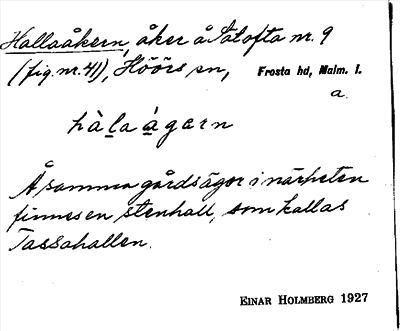 Hallaåkern, åker å Sätofta nr. 9
(fig. nr. 41), Höörs sn, Frosta hd, Malm. l.
a.
hàlaágarn
Å samma gårds ägor i närheten
finnes en stenhall, som kallas
Tassahallen.
EINAR HOLMBERG 1927